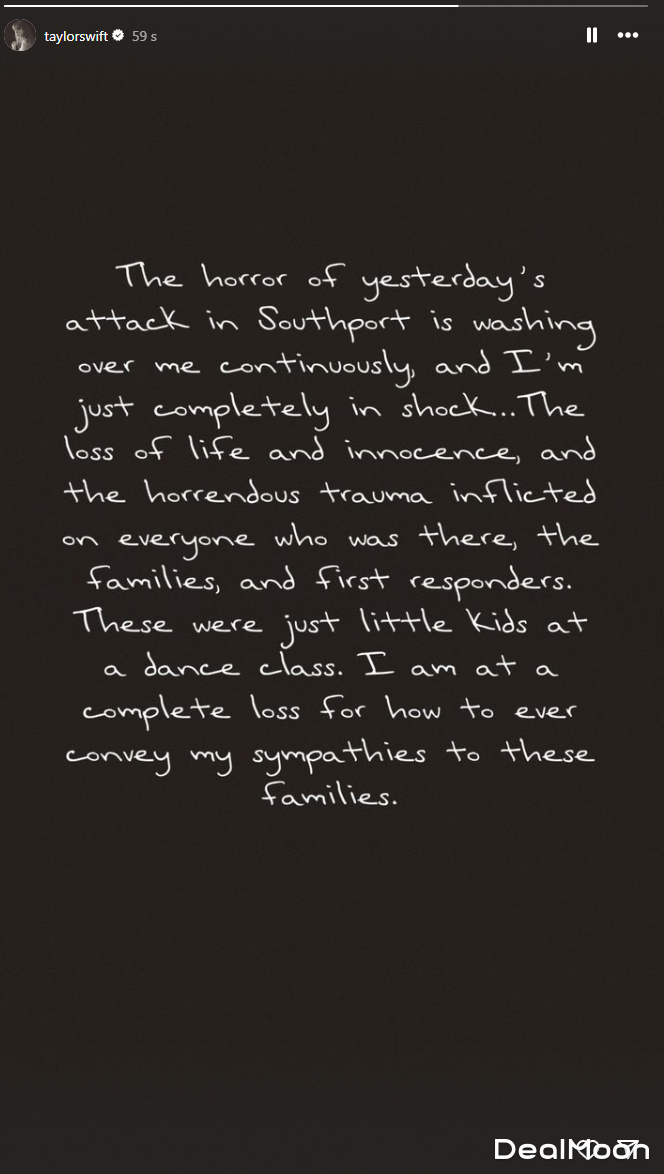 taylorswift 59 s
The horror of yesterday's
attack in Southport is washing
over me continuously, and I'm
just completely in shock...The
loss of life and innocence, and
the horrendous trauma inflicted
on everyone who was there, the
families, and first responders.
These were just little kids at
a dance class. I am at a
complete loss for how to ever
convey my sympathies to these
families.
DealMoon